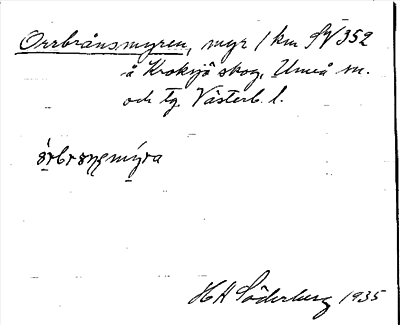 Orrbrånsmyren, myr 1 km SV 352
å Kroksjö skog, Umeå sn.
och tg. Västerb. l.
H H Söderberg 1935